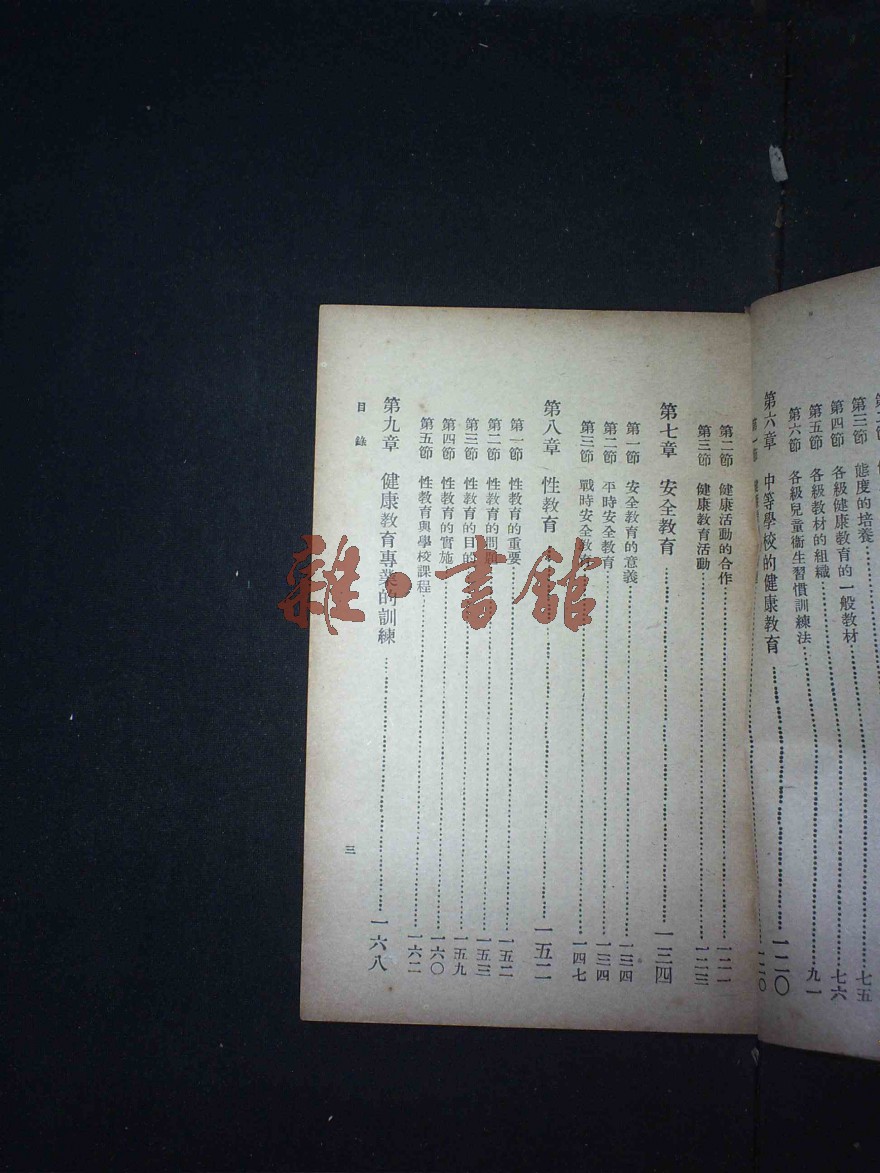 態度的培養……七五
第四節 各級健康教育的一般教材……七六
第五節 各級教材的組織……九一
第六節 各級兒童衞生習慣訓練法
第六章 中等學校的健康教育……一二〇
第二節 健康活動的合作……一二一
第三節 健康教育活動……一二三
第七章 安全教育……一三四
第一節 安全教育的意義……一三四
第二節 平時安全教育……一三四
第三節 戰時安全教育……一四七
第八章 性教育……一五二
第一節 性教育的重要……一五二
第二節 性教育的問題……一五三
第三節 性教育的目的……一五九
第四節 性教育的實施……一六〇
第五節 性教育與學校課程……一六二
第九章 健康教育專業的訓練……一六八
目錄
三
雜·書館